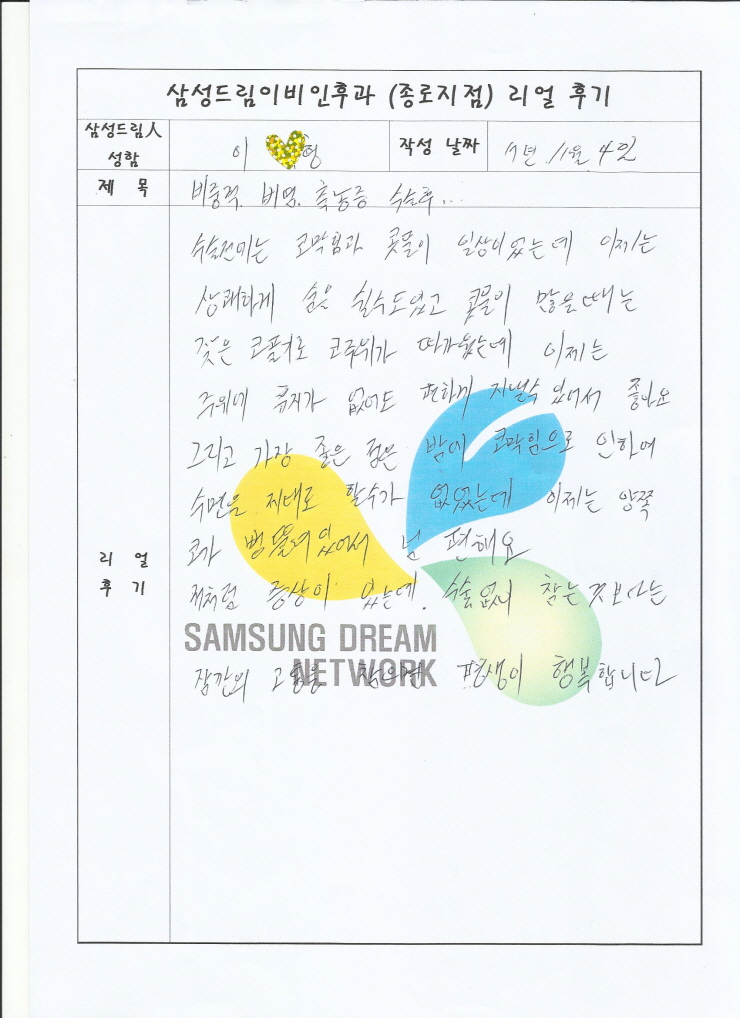 삼성드림이비인후과 (종로지점) 리얼 후기
삼성드림人
성함
이 형
작성 날짜
17년 11월 4일
제 목
비중격, 비염, 축농증 수술후...
리 얼
후 기
수술전에는 코막힘과 콧물이 일상이었는데 이제는
상쾌하게 숨을 쉴수도있고 콧물이 많을때는
잦은 코풀기로 코주위가 따가웠는데 이제는
주위에 휴지가 없어도 편하게 지낼수 있어서 좋아요
그리고 가장 좋은 점은 밤에 코막힘으로 인하여
수면을 제대로 할수가 없었는데 이제는 양쪽
코가 뻥 뚫려있어서 넘 편해요
저처럼 증상이 있는데, 수술없이 참는것보다는
잠깐의 고통을 참으면 평생이 행복합니다
SAMSUNG DREAM
NETWORK